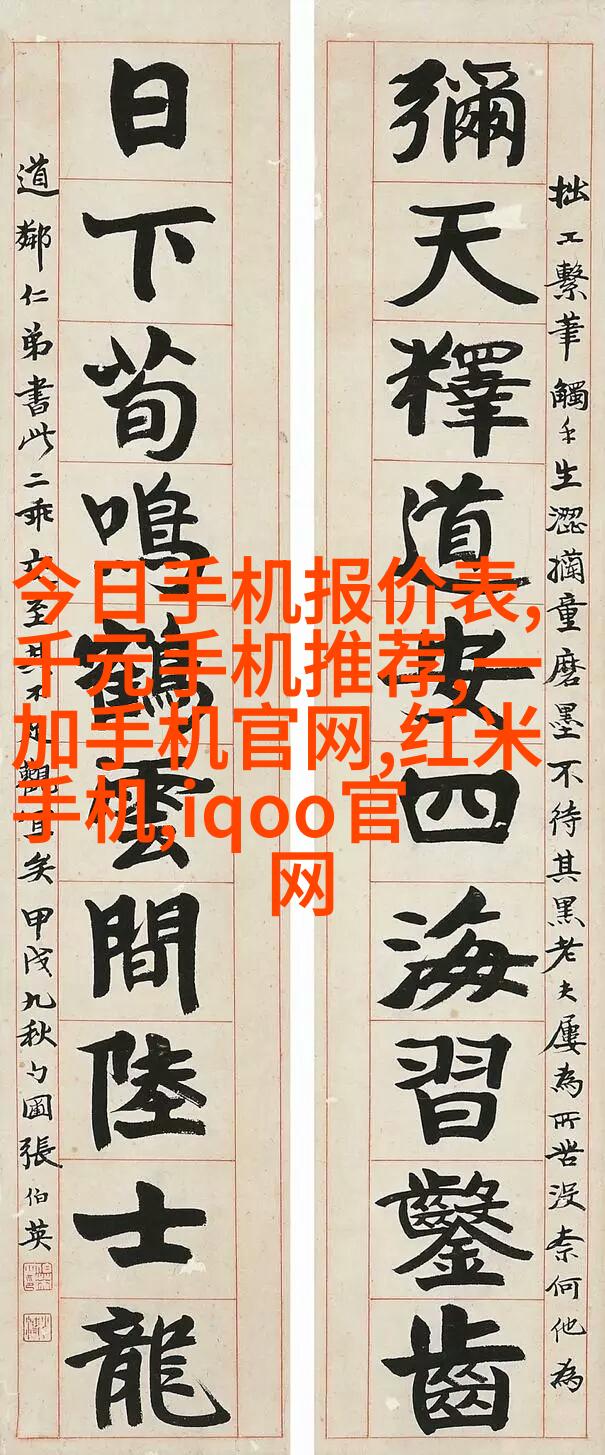 拙工繫筆觸手生澀童磨墨不待其黑老夫屢為所苦沒奈何他為
彌天釋道安四海習鑿齒
日下荀鳴鶴雲間陸士龍
道鄰仁弟書此二乖交至其不觀宜矣甲戌九秋勺圃張伯英
今日手机报价表,
千元手机推荐,一
加手机官网,红米
手机,iqoo官
网